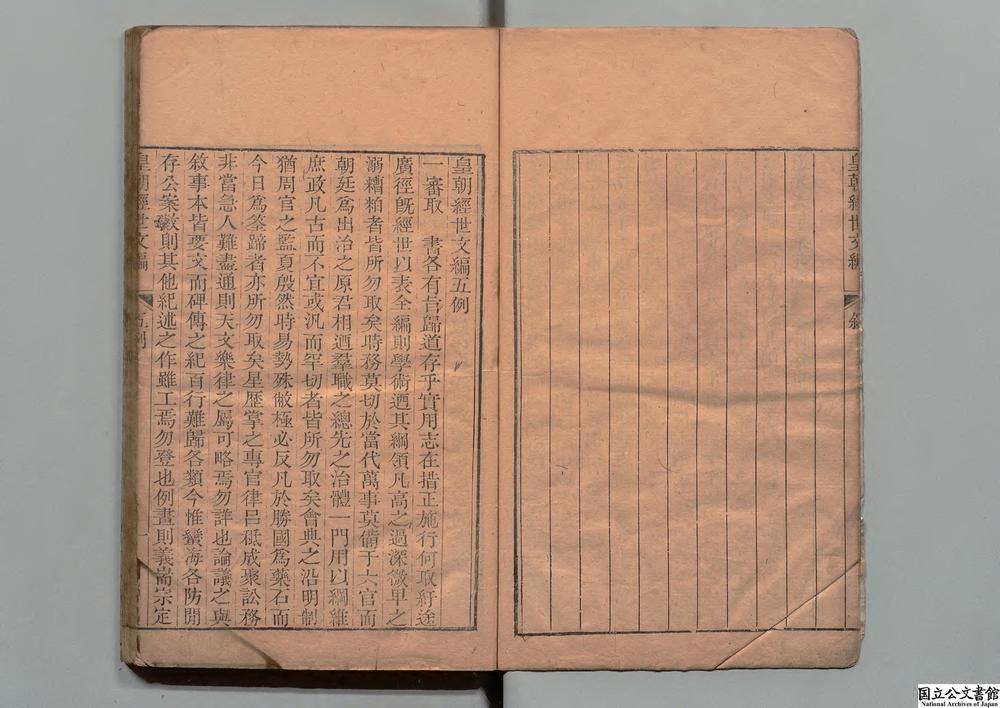 皇朝經世文編
敘
皇朝經世文編五例
一審取　書各有旨歸道存乎實用志在措正施行何取紆途
廣徑既經世以表全編則學術迺其綱領凡高之過深微卑之
溺糟粕者皆所勿取矣時務莫切於當代萬事莫備于六官而
朝廷為出治之原君相迺羣職之總先之治體一門用以綱維
庶政凡古而不宜或汎而罕切者皆所勿取矣會典之沿明制
猶周官之監夏殷然時易勢殊敝極必反凡於勝國為藥石而
今日為筌蹄者亦所勿取矣星歷掌之專官律呂祗成聚訟務
非當急人難盡通則天文樂律之屬可略焉勿詳也論議之與
敘事本皆要文而碑傳之紀百行難歸各類今惟蠻海各防開
存公案數則其他紀述之作雖工焉勿登也例畫則義崙宗定
皇朝經世文編
五例
一
国立公文書館
National Archives of Japan